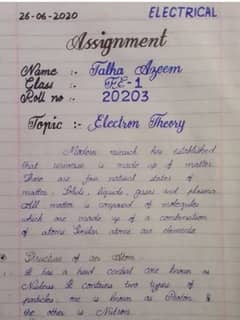 26-06-2020 ELECTRICAL
Assignment
Name :- Talha Azeem
Class :- FE-1
Roll no :- 20203
Topic :- Electron Theory
Modern reseach has established
that universe is made up of matter.
There are four natural states of
matter. Solids, liquids, gases and plasma
All matter is composed of molecules
which are made up of a combination
of atoms Similar atoms are elements
Structure of an Atom.
It has a hard central core known as
Nucleus It contains two types of
particles, one is known as Proton &
the other is Nutron.